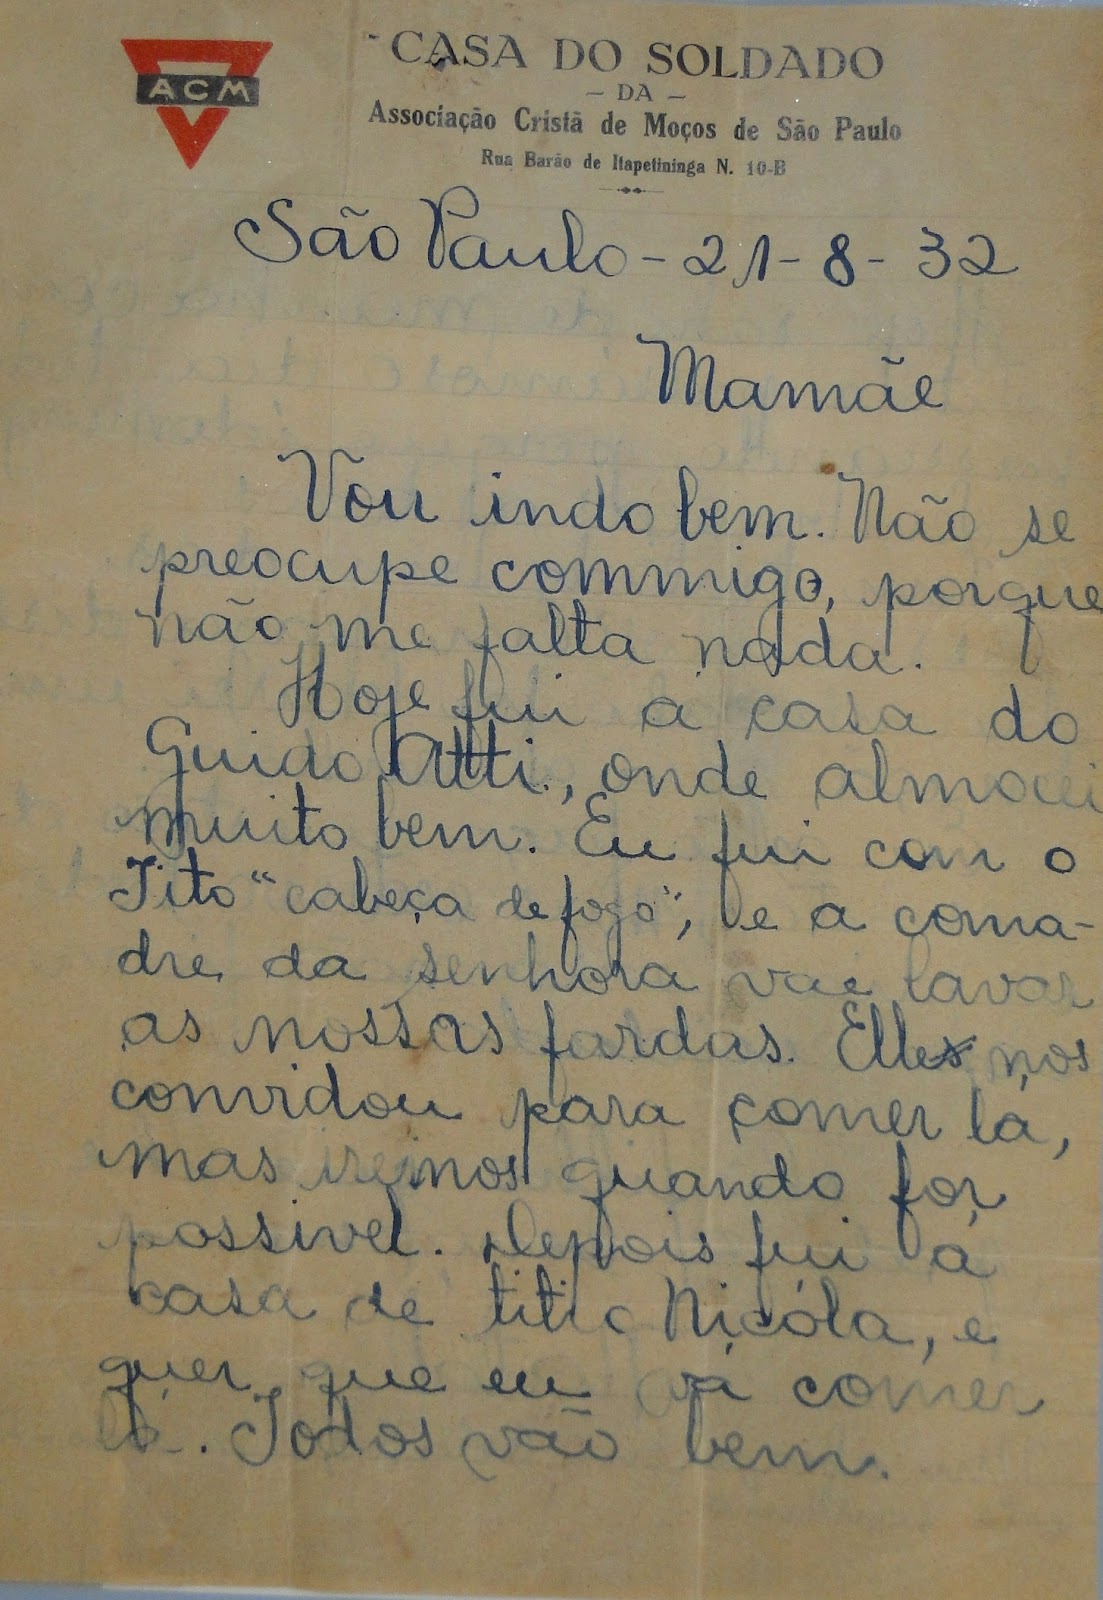 ACM
CASA DO SOLDADO
- DA -
Associação Cristã de Moços de São Paulo
Rua Barão de Itapetininga N. 10-B
São Paulo - 21 - 8 - 32
Mamãe
Vou indo bem. Não se
preocupe commigo, porque
não me falta nada.
Hoje fui á casa do
Guido Atti, onde almocei
muito bem. Eu fui com o
Tito "cabeça de fogo", e a coma-
dre da senhora vae lavar
as nossas fardas. Elle nos
convidou para comer lá,
mas iremos quando for
possivel. Depois fui á
casa de titio Nicóla, e
quer que eu vá comer
lá. Todos vão bem.